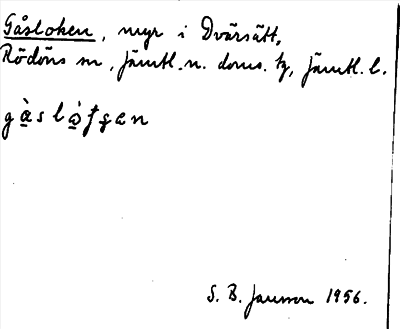 Gåsloken, myr i Dvärsätt,
Rödöns sn, Jämtl. n. doms. tg, Jämtl. l.
S. B. Jansson 1956.